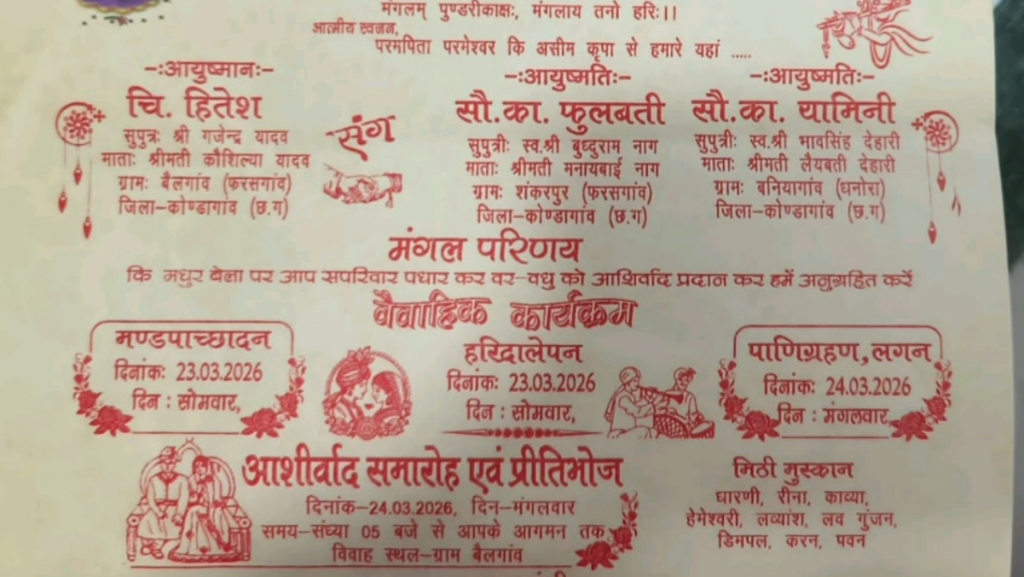 मंगलम् पुण्डरीकाक्षः, मंगलाय तनो हरिः।।
आत्मीय स्वजन,
परमपिता परमेश्वर कि असीम कृपा से हमारे यहां .....
-:आयुष्मानः-
चि. हितेश
सुपुत्रः श्री गजेन्द्र यादव
माताः श्रीमती कौशिल्या यादव
ग्रामः बैलगांव (फरसगांव)
जिला-कोण्डागांव (छ.ग)
संग
-:आयुष्मतिः-
सौ.का. फुलबती
सुपुत्रीः स्व.श्री बुध्दुराम नाग
माताः श्रीमती मनायबाई नाग
ग्रामः शंकरपुर (फरसगांव)
जिला-कोण्डागांव (छ.ग)
-:आयुष्मतिः-
सौ.का. यामिनी
सुपुत्रीः स्व.श्री भावसिंह देहारी
माताः श्रीमती लैयबती देहारी
ग्रामः बनियागांव (धनोरा)
जिला-कोण्डागांव (छ.ग)
मंगल परिणय
कि मधुर बेला पर आप सपरिवार पधार कर वर-वधु को आशिर्वाद प्रदान कर हमें अनुग्रहित करें
वैवाहिक कार्यक्रम
मण्डपाच्छादन
दिनांकः 23.03.2026
दिन : सोमवार,
हरिद्रालेपन
दिनांकः 23.03.2026
दिन : सोमवार,
पाणिग्रहण, लगन
दिनांकः 24.03.2026
दिन : मंगलवार,
आशीर्वाद समारोह एवं प्रीतिभोज
दिनांक-24.03.2026, दिन-मंगलवार
समय-संध्या 05 बजे से आपके आगमन तक
विवाह स्थल-ग्राम बैलगांव
मिठी मुस्कान
धारणी, रीना, काव्या,
हेमेश्वरी, लव्यांश, लव गुंजन,
डिमपल, करन, पवन